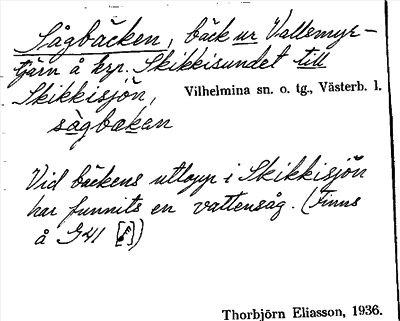 Sågbäcken, bäck ur Vallemyr-
tjärn å hzp. Skikkisundet till
Skikkisjön, Vilhelmina sn. o. tg., Västerb. l.
sàgbakan
Vid bäckens utlopp i Skikkisjön
har funnits en vattensåg. (Finns
å G41 [])
Thorbjörn Eliasson, 1936.